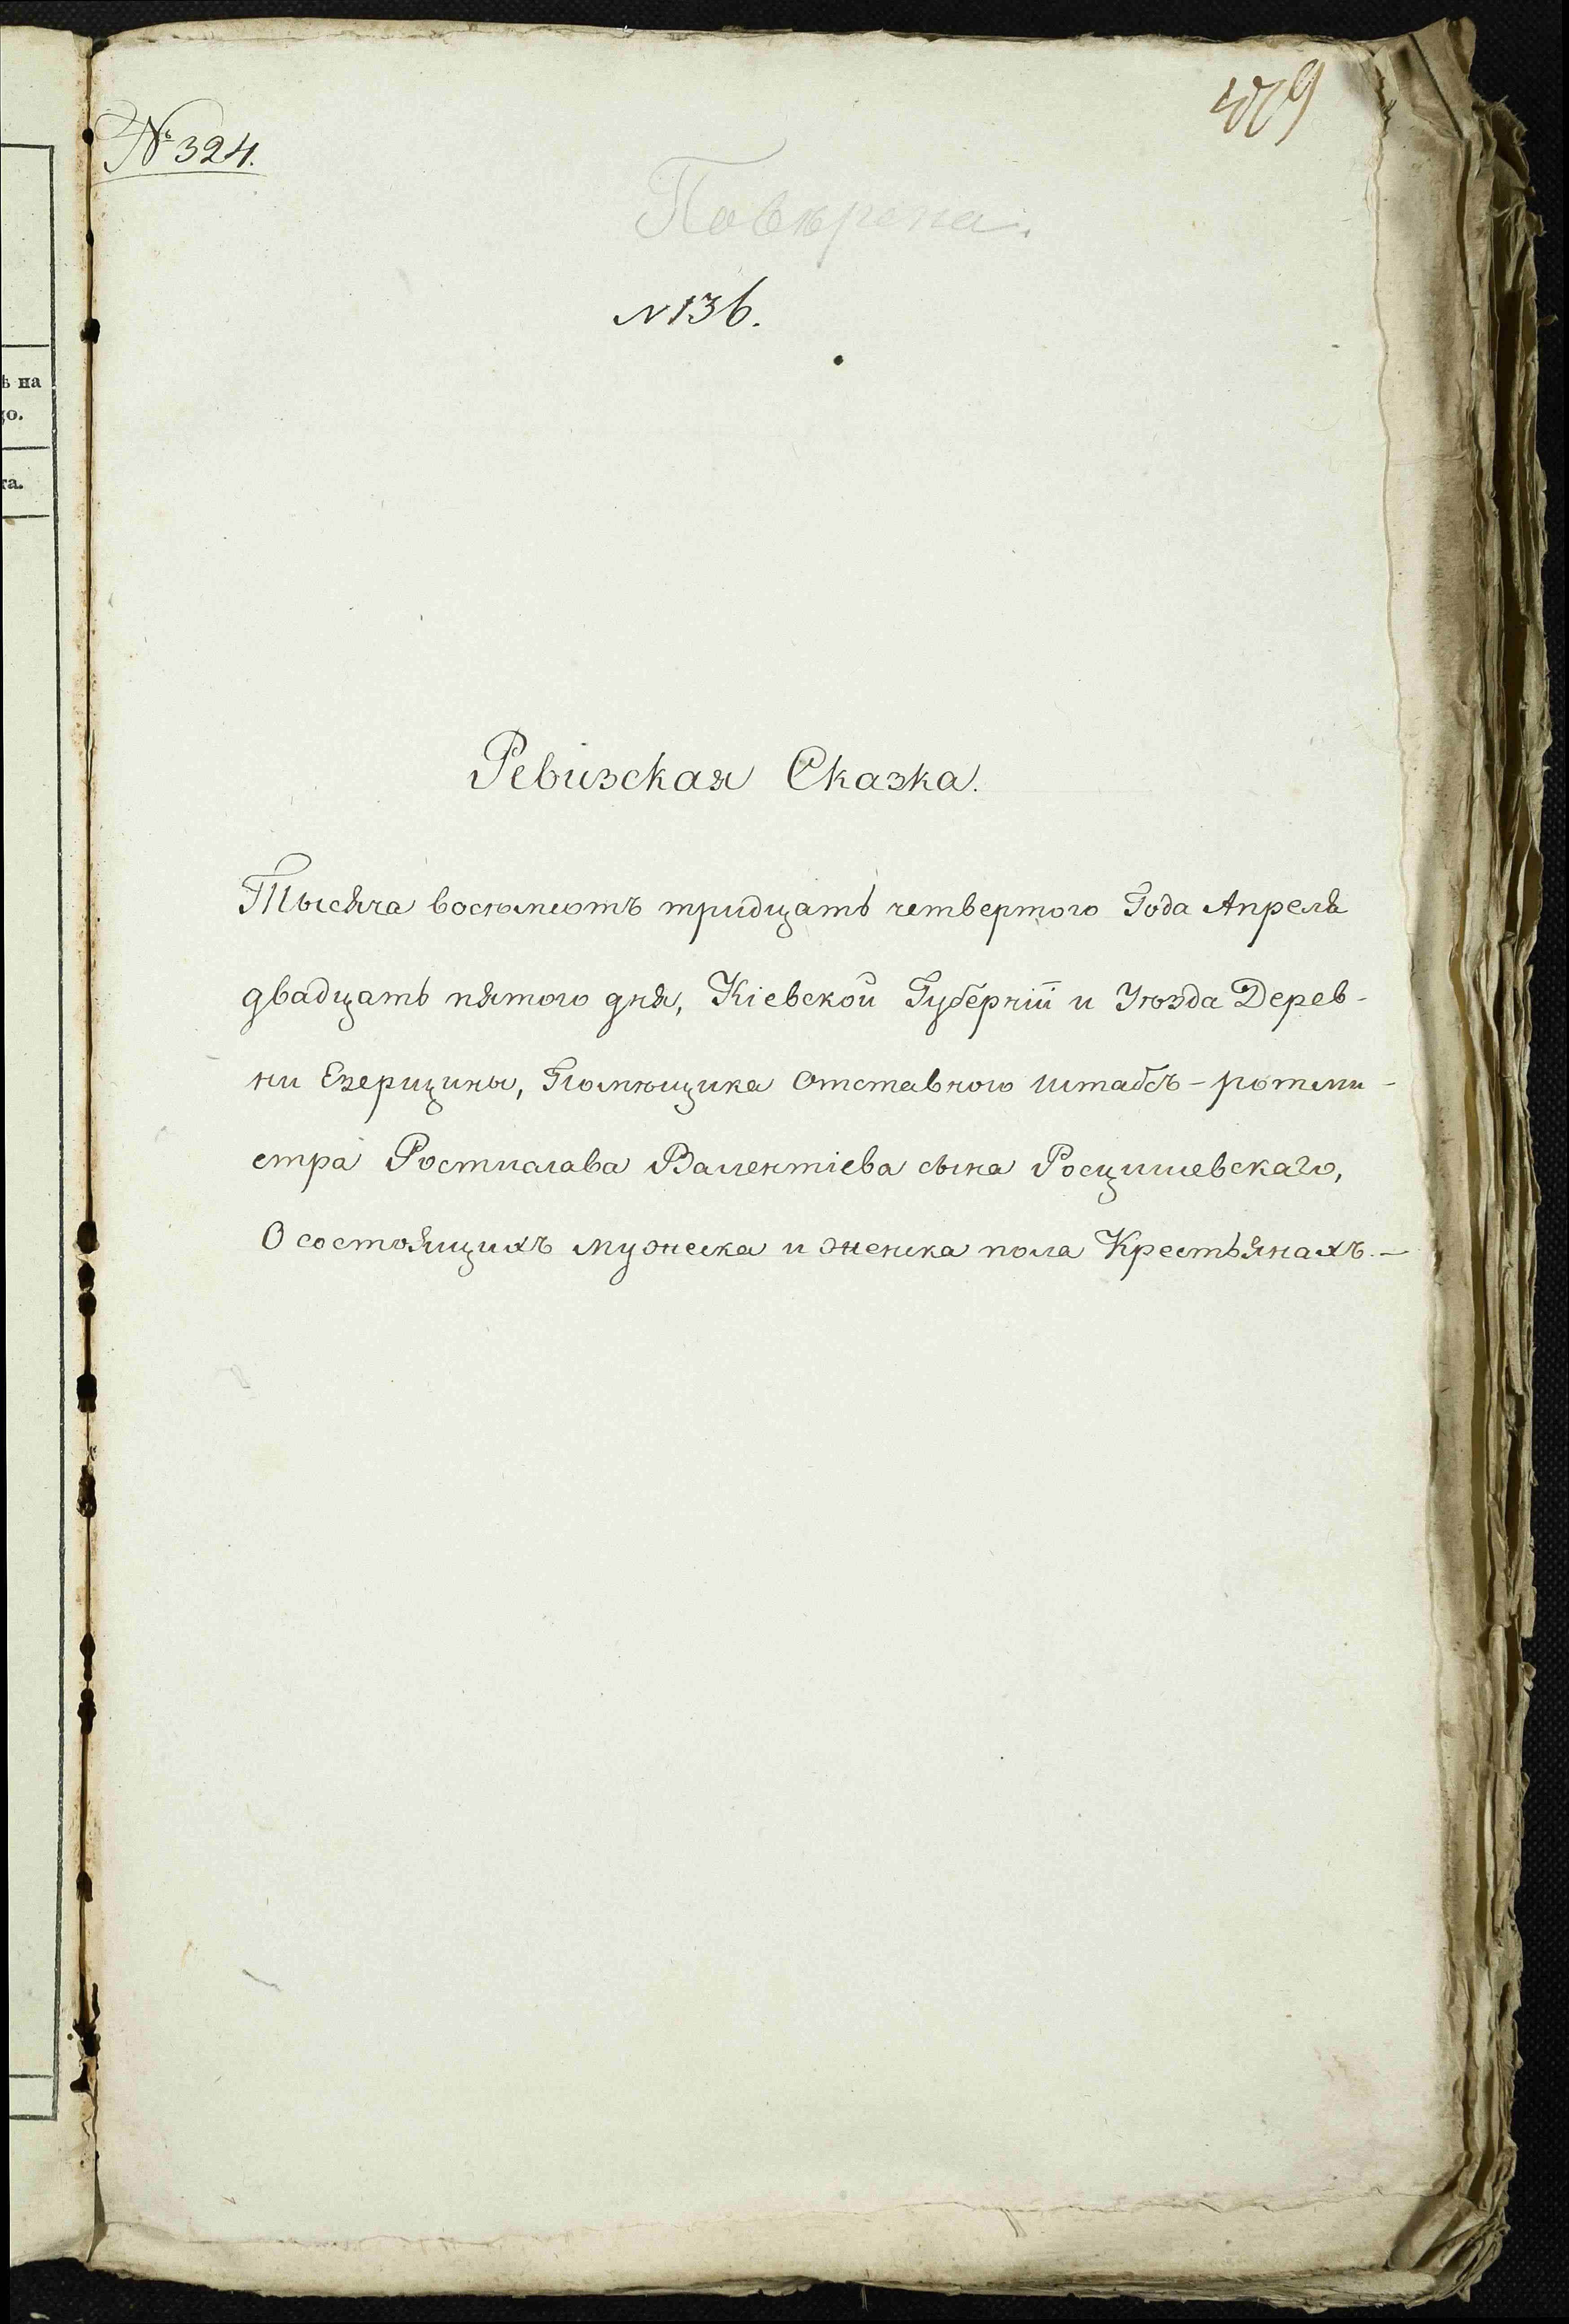 ѣ на
го.
та.
№ 324.
Повѣрена.
N 136.
Ревизская Сказка.
Тысяча восемьсотъ тридцать четвертого Года Апреля
двадцать пятого дня, Кіевской Губерніи и Уѣзда Дерев-
ни Езерщины, Помѣщика отставного штабсъ-ротми-
стра Ростислава Валентіева сына Росцишевскаго,
О состоящихъ мужеска и женска пола Крестьянахъ.—